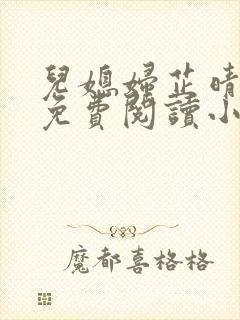 兒媳婦芷晴
免費閱讀小
魔都喜格格